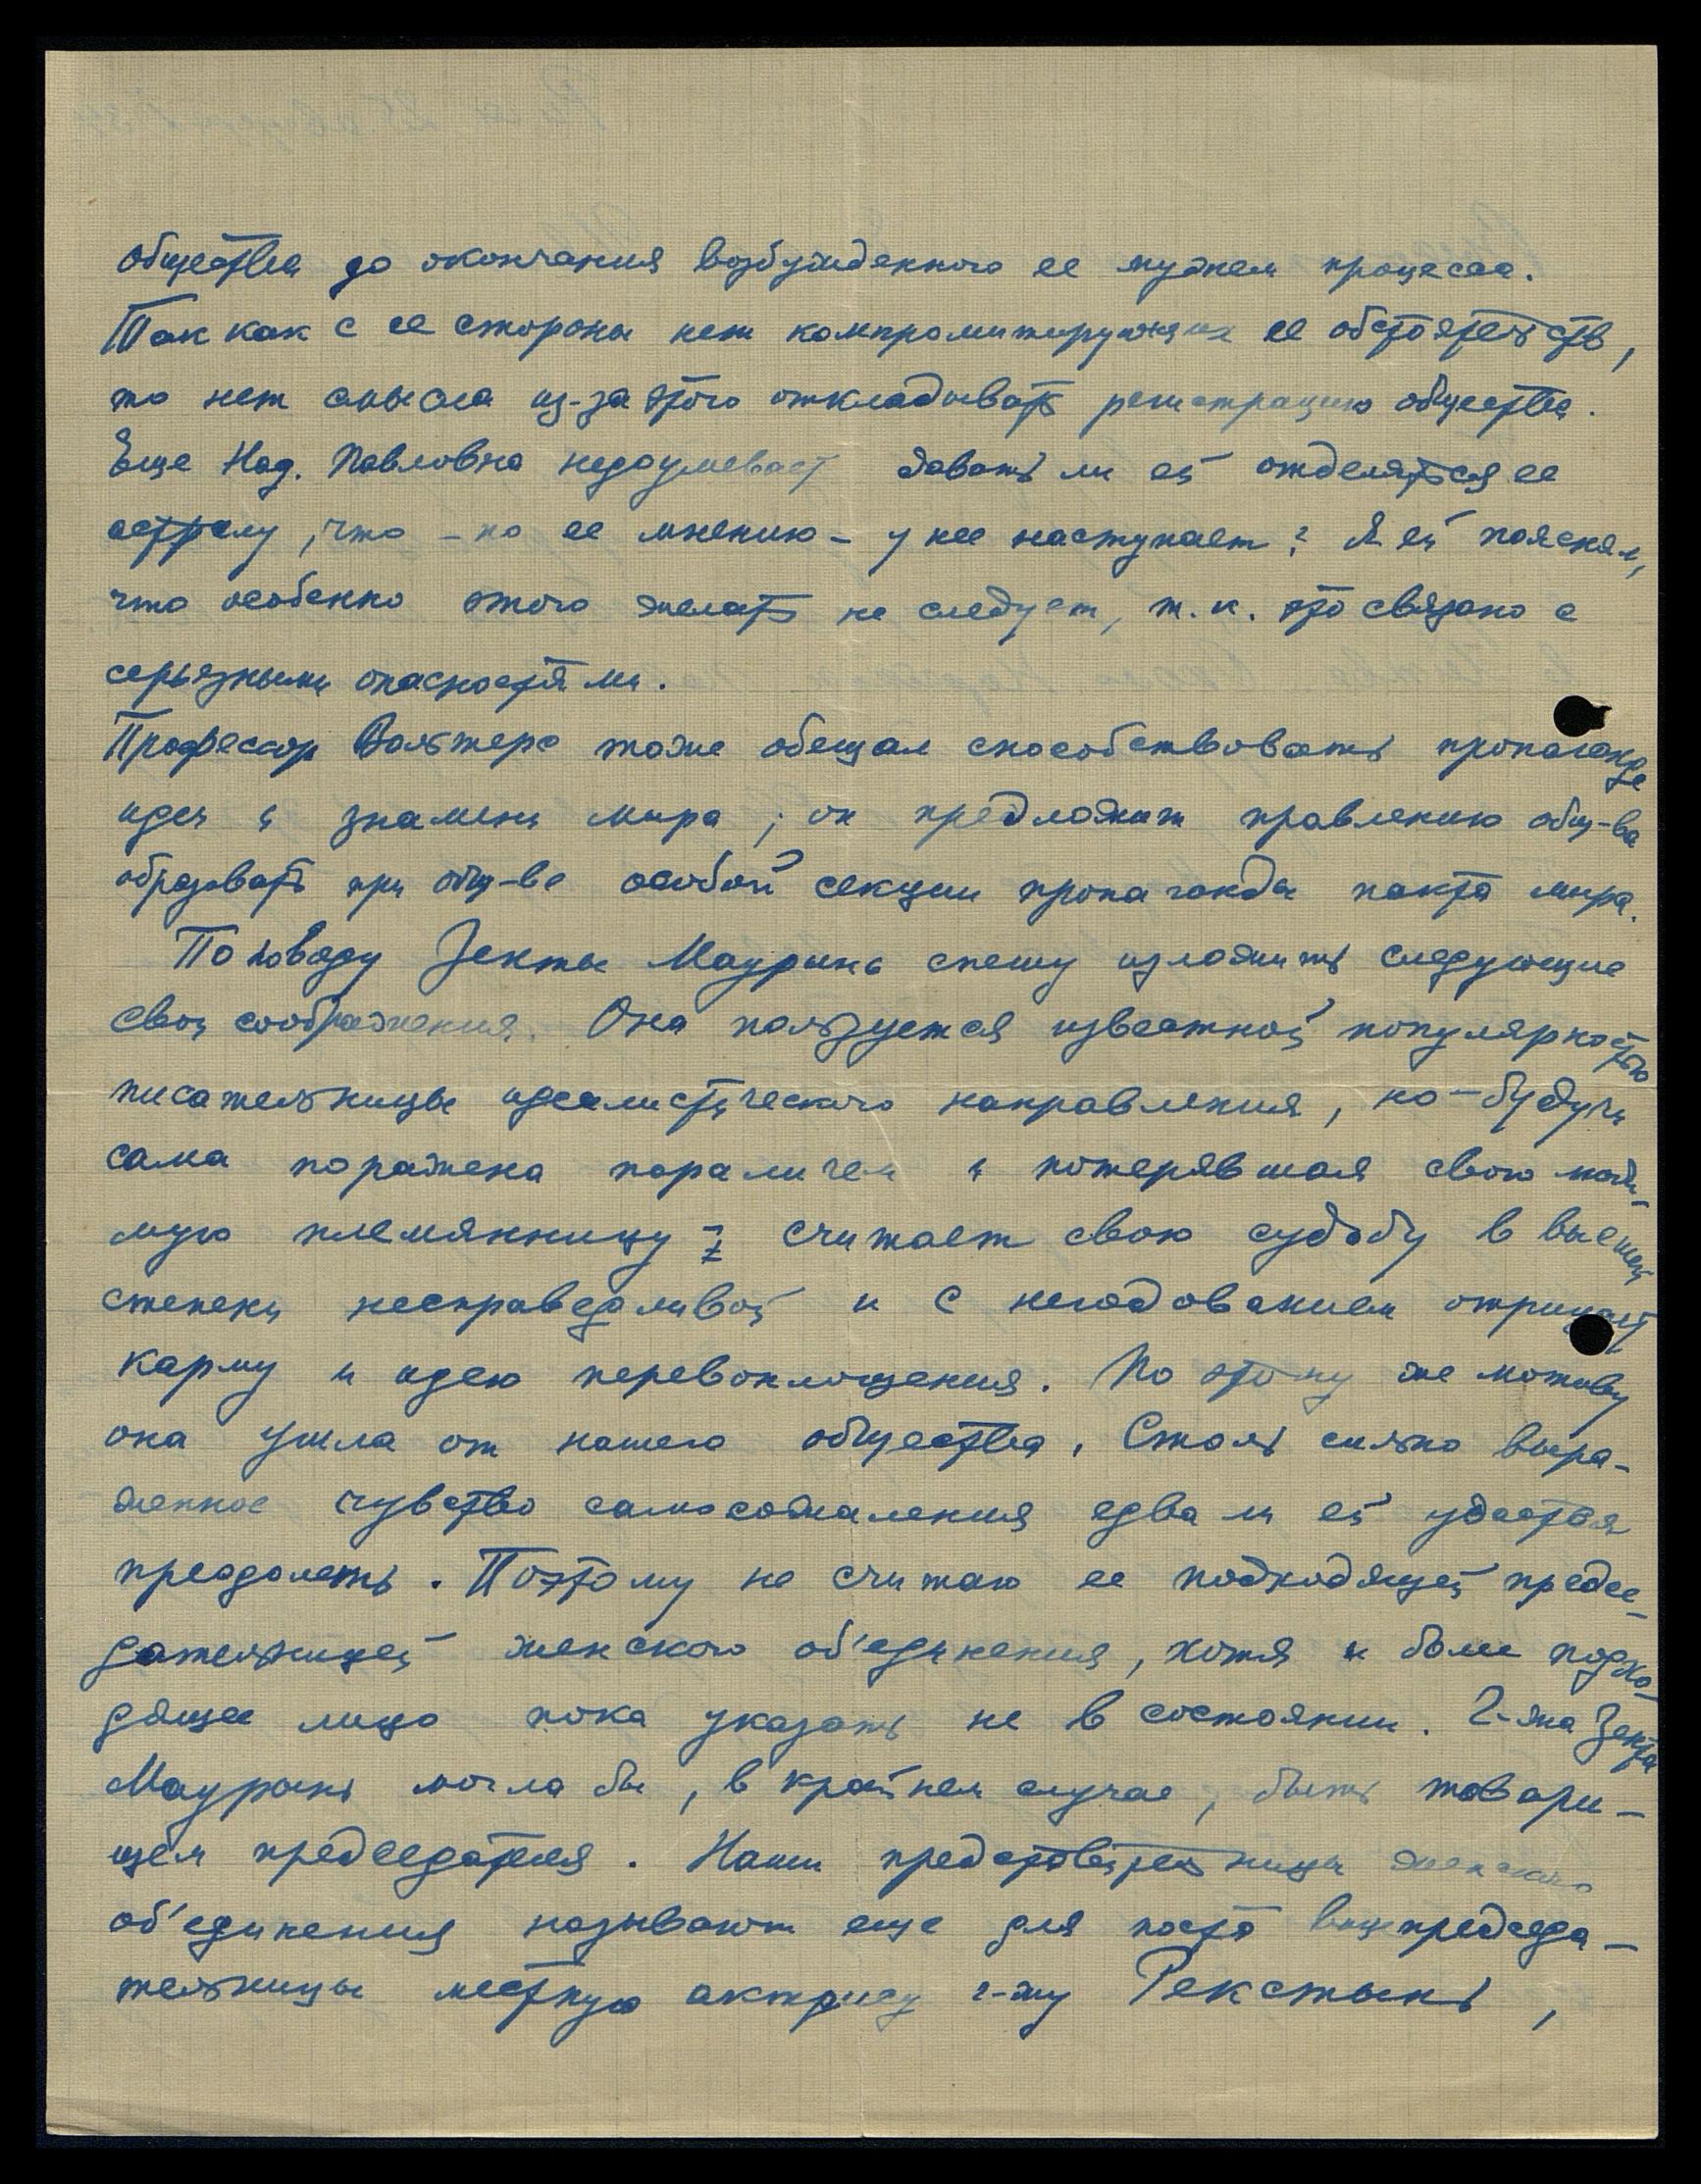 общества до окончания возбужденного ее мужем процесса.
Так как с ее стороны нет компромитирующих ее обстоятельств,
то нет смысла из-за этого откладывать регистрацию общества.
Еще Над. Павловна недоумевает давать ли ей отделяться ее
астралу, что – по ее мнению – у нее наступает? Я ей пояснял,
что особенно этого желать не следует, т.к. это связано с
серьезными опасностями.
Профессор Вальтерс тоже обещал способствовать пропаганде
идеи и знамени мира; он предложит правлению общ-ва
образовать при общ-ве особой секции пропаганды пакта мира.
По поводу Зенты Маурынь спешу изложить следующие
свои соображения. Она пользуется известной популярностью
писательницы идеалистического направления, но – будучи
сама поражена параличем и потерявшая свою люби-
мую племянницу – считает свою судьбу в высшей
степени несправедливой и с негодованием отрицает
карму и идею перевоплощения. По этому же мотиву
она ушла от нашего общества. Столь сильно выра-
женное чувство самосожаления едва ли ей удастся
преодолеть. Поэтому не считаю ее подходящей предсе-
дательницей женского об'единения, хотя и более подхо-
дящее лицо пока указать не в состоянии. Г-жа Зента
Маурынь могла бы, в крайнем случае, быть товари-
щем председателя. Наши представительницы женского
об'единения называют еще для поста вицепредседа-
тельницы местную актрису г-жу Рекстынь,